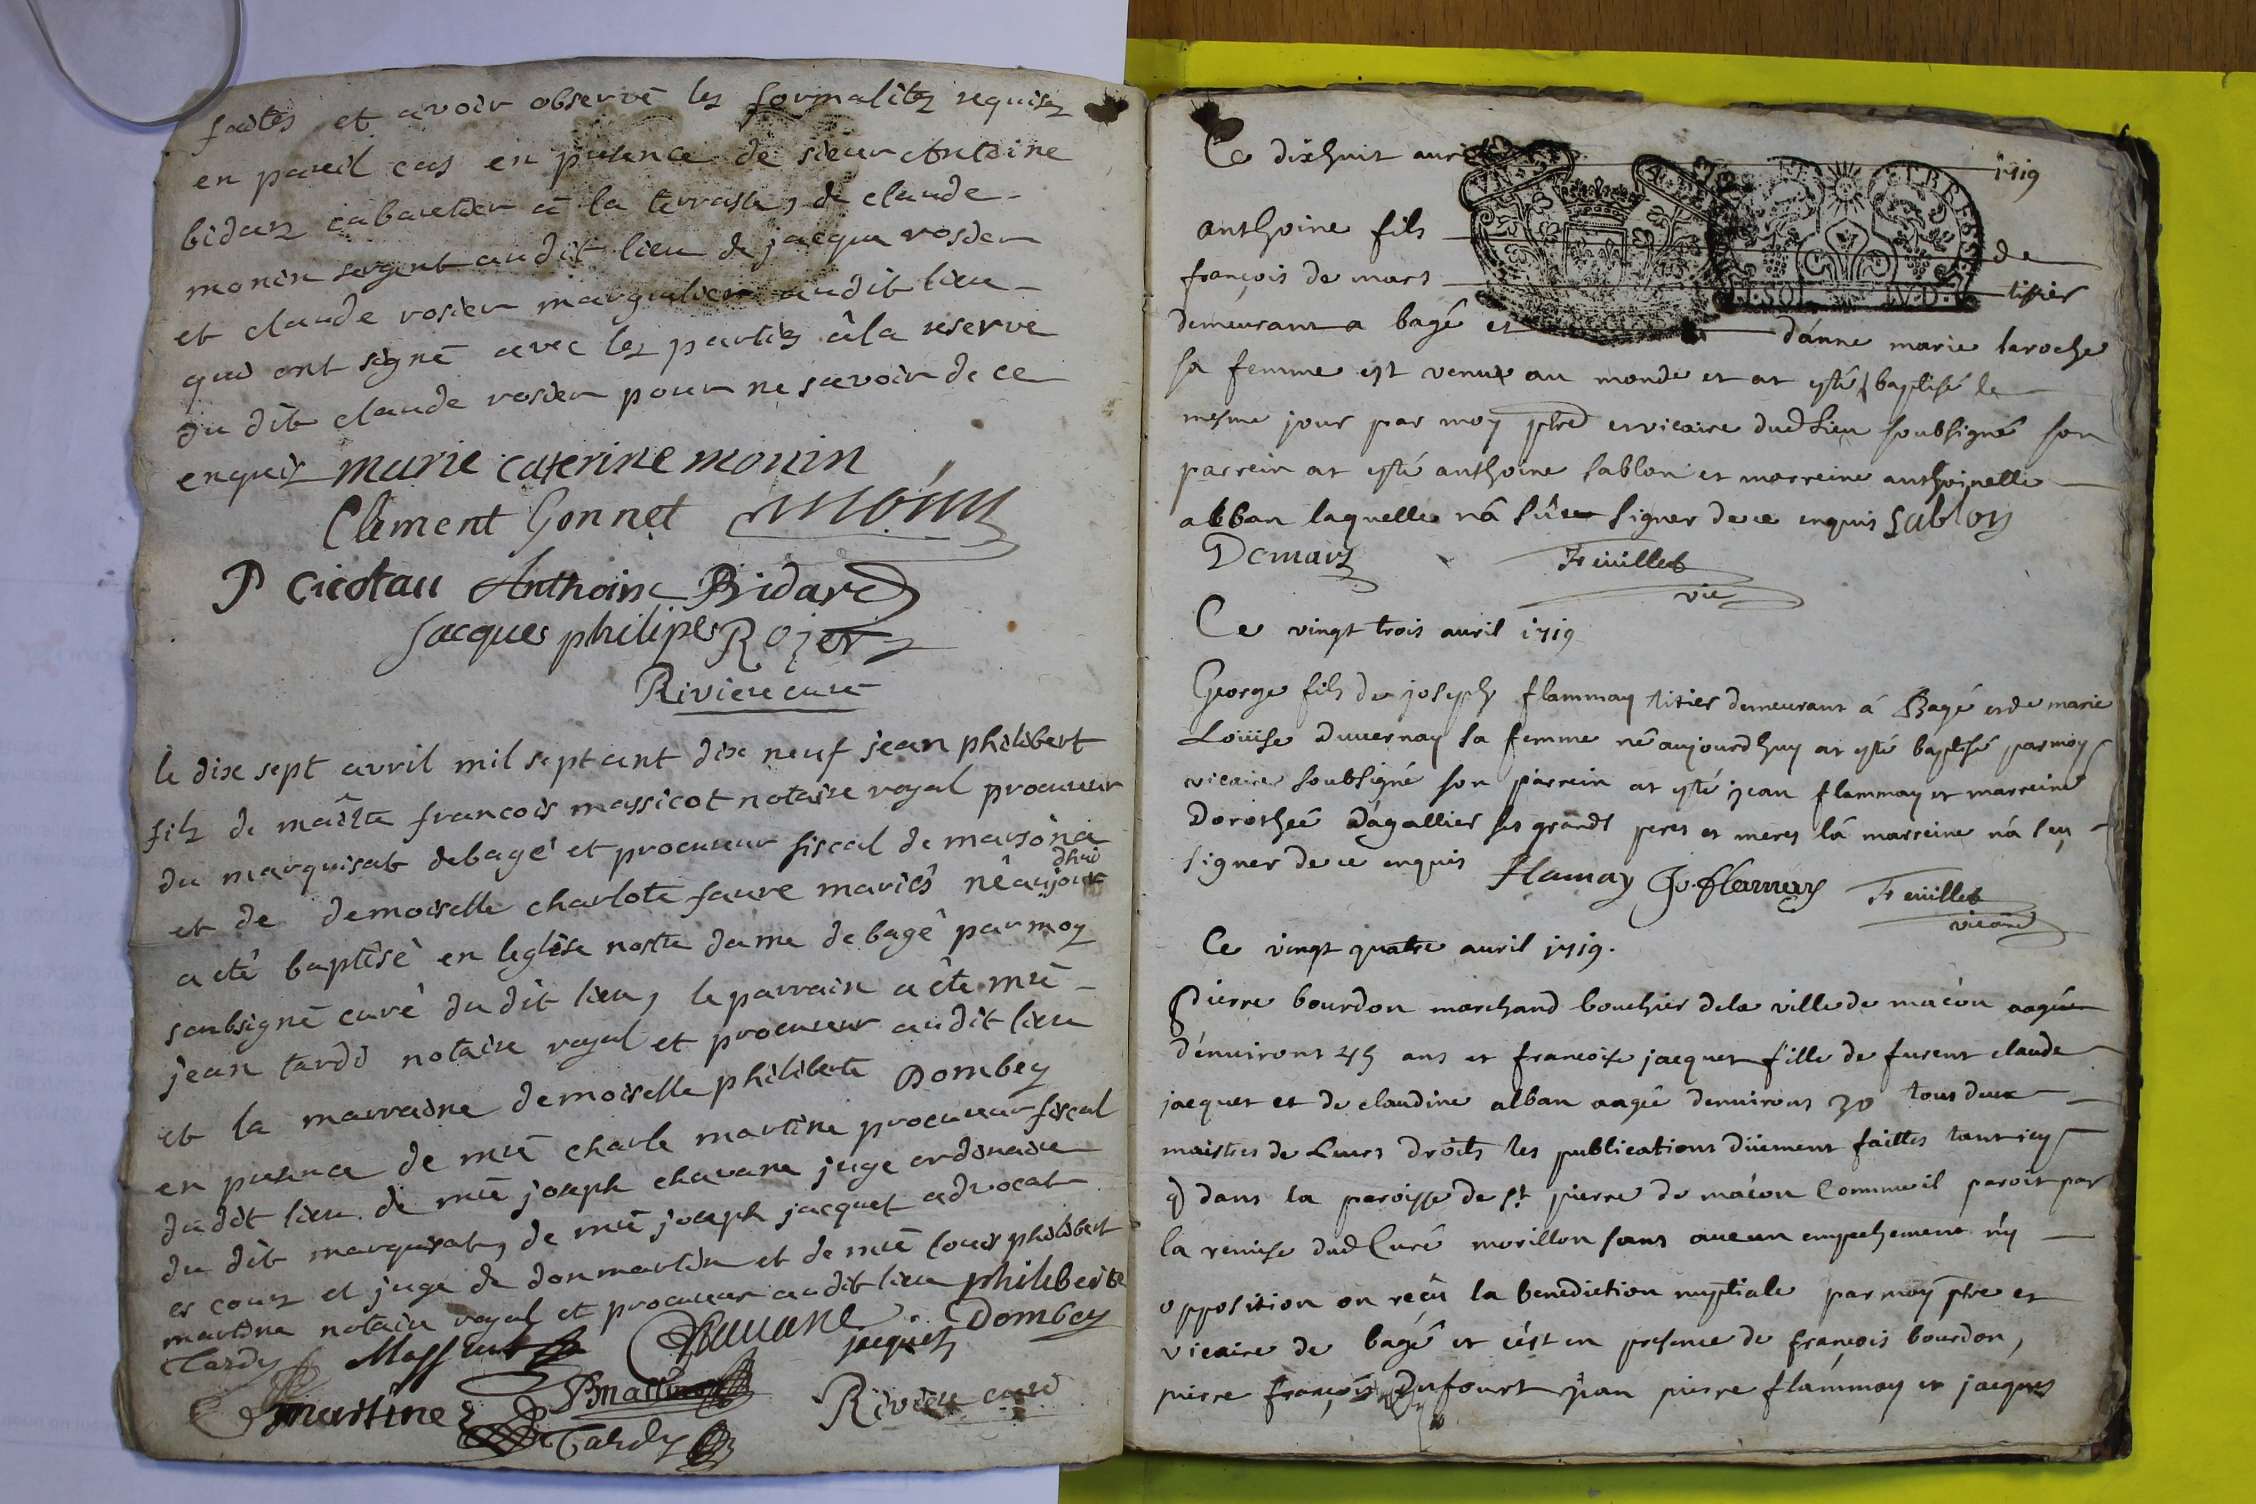 faites et avoir observé les formalitez requises
en pareil cas en presence de sieur Antoine
bidarz cabaretier a la terrasse, de claude
monin sergent audit lieu de jacque rosier
et claude rosier marguilier audit lieu
qui ont signé avec les parties à la reserve
du dit claude rosier pour ne savoir de ce
enquis marie caterine monin
Clement Gonnet monin
P cicotau Anthoine Bidard
Jacques philipes Rozier
Riviere curé
le dix sept avril mil sept cent dix neuf jean philibert
filz de maître francois massicot notaire royal procureur
du marquisat de bagé et procureur fiscal de marsona
et de demoiselle charlote faure mariés né aujour dhui
a eté baptisé en leglise nostre dame de bagé par moy
soubsigné curé du dit lieu, le parrain a êté mre
jean tardi notaire royal et procureur audit lieu
et la marraine demoiselle philiberte Dombey
en presence de mre charle martine procureur fiscal
du dit lieu de mre joseph chavane juge ordinaire
du dit marquisat, de mre joseph jacquet advocat
es cour et juge de donmartin et de mre louis philibert
martine notaire royal et procureur audit lieu philiberte
Tardy Chavane jaquet Dombey
martine Martine Riviere curé
Tardy
Ce dixhuit avril 1719
anthoine fils de
françois de mars tissier
demeurant a bagé et d'anne marie laroche
sa femme est venu au monde et at esté baptisé le
mesme jour par moy ptre et vicaire dud lieu soubsigné son
parrein at esté anthoine sablon et marreine anthoinette
alban laquelle n'a sûe signer de ce enquis Sablon
Demars Feuillet
vic
Ce vingt trois avril 1719
George fils de joseph flammay titier demeurant á Bagé et de marie
Loüise duvernay sa femme né aujourdhuy at esté baptisé par moy
vicaire soubsigné son parrein at esté jean flammay et marreine
dorotheé Dagallier ses grands peres et meres la marreine n'á seu
signer de ce enquis Flamay J. flamay Feuillet
vicaire
Ce vingt quatre avril 1719.
Pierre bourdon marchand boucher dela ville de mácon aagée
d'environt 45 ans et francoise jacquet fille de furent claude
jacquet et de claudine alban aagée denviront 30 tous deux
maistres de Leurs droits les publications düement faittes tant icy
q dans la paroisse de St pierre de mácon Comme il paroit par
la remise dud Curé morillon sans aucun empechement ny
opposition on reçu la benediction nuptiale par moy ptre et
vicaire de bagé et c'est en presence de françois bourdon,
pierre françois Dufourt jean pierre flammay et jacques